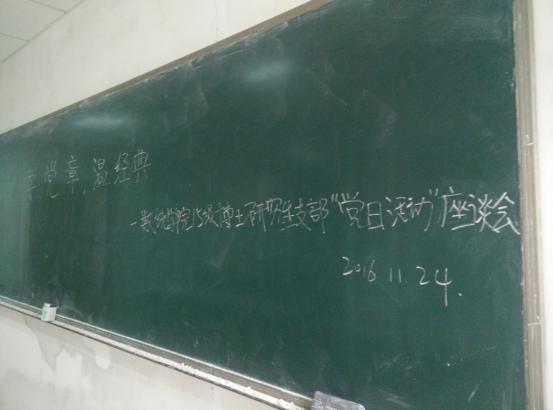 党章，温经典
一数统学院15级博士研究生支部“党日活动”座谈会
2016 11.24.